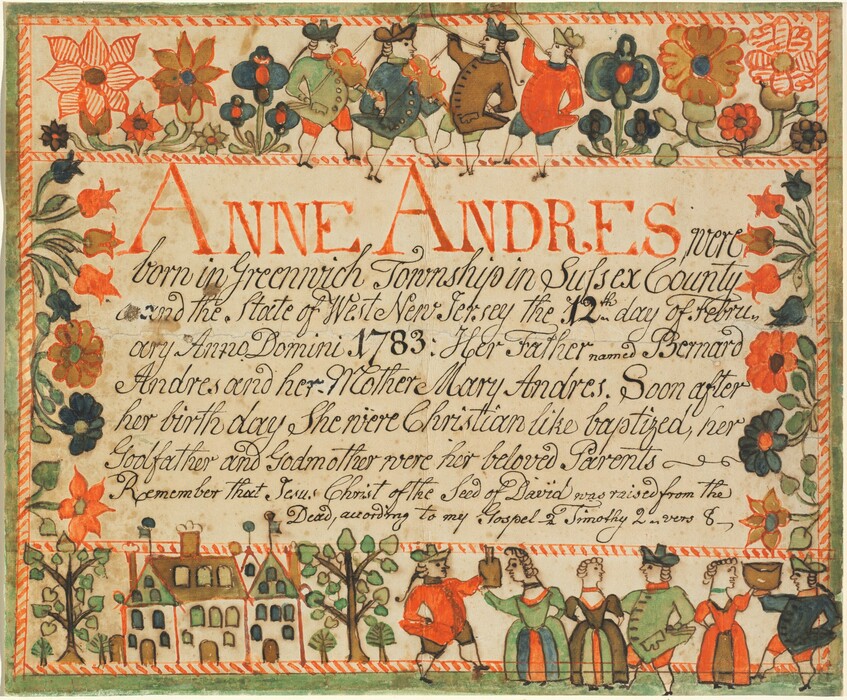 ANNE ANDRES were
born in Greenwich Township in Sussex County
and the State of West New-Jersey the 12th day of Febru„
ary Anno Domini 1783: Her Father named Bernard
Andres and her Mother Mary Andres. Soon after
her birth day She were Christian like baptized, her
Godfather and Godmother were her beloved Parents
Remember that Jesus Christ of the Seed of David was raised from the
Dead, according to my Gospel 2 Timothy 2 vers 8